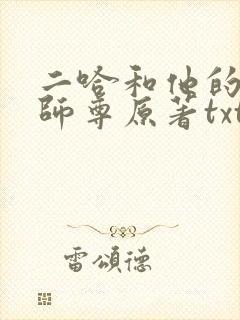 二哈和他的
師尊原著txt
雷頌德